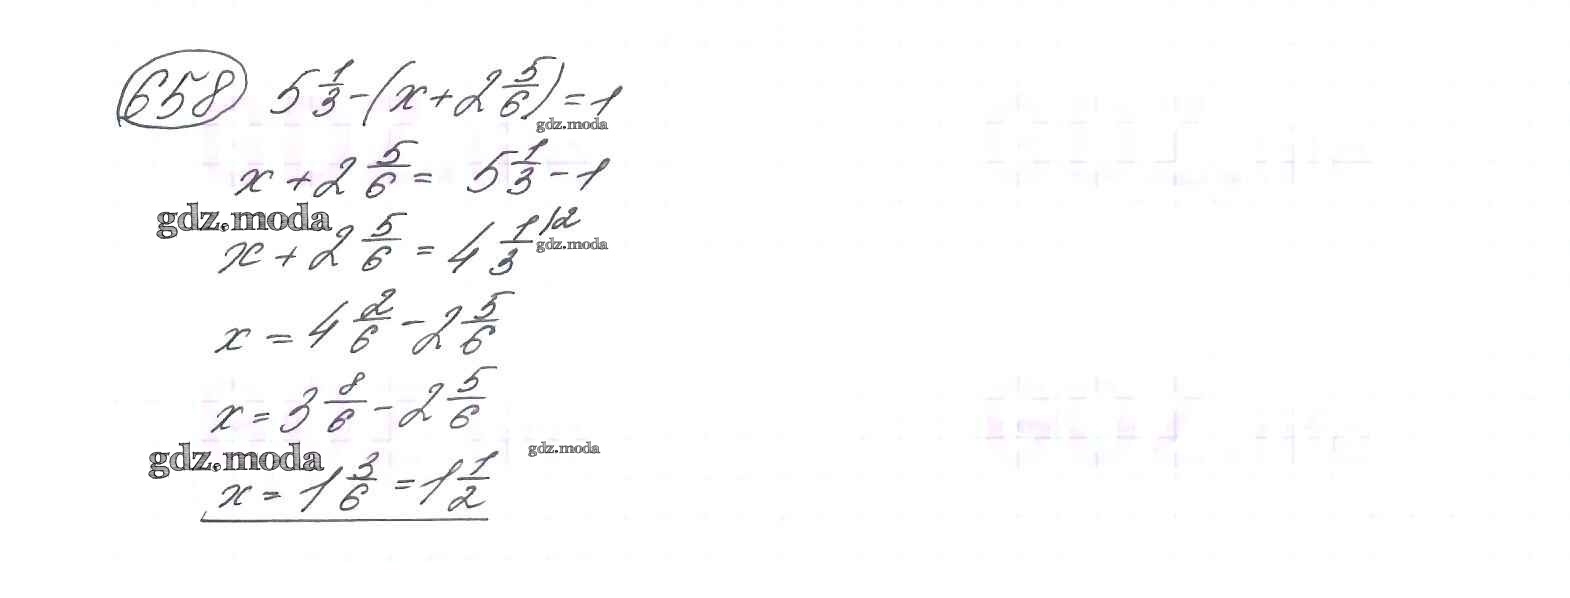 658 5 1/3 - (x + 2 5/6) = 1
gdz.moda
x + 2 5/6 = 5 1/3 - 1
gdz.moda
x + 2 5/6 = 4 1/3 \2
gdz.moda
x = 4 2/6 - 2 5/6
x = 3 8/6 - 2 5/6
gdz.moda gdz.moda
x = 1 3/6 = 1 1/2